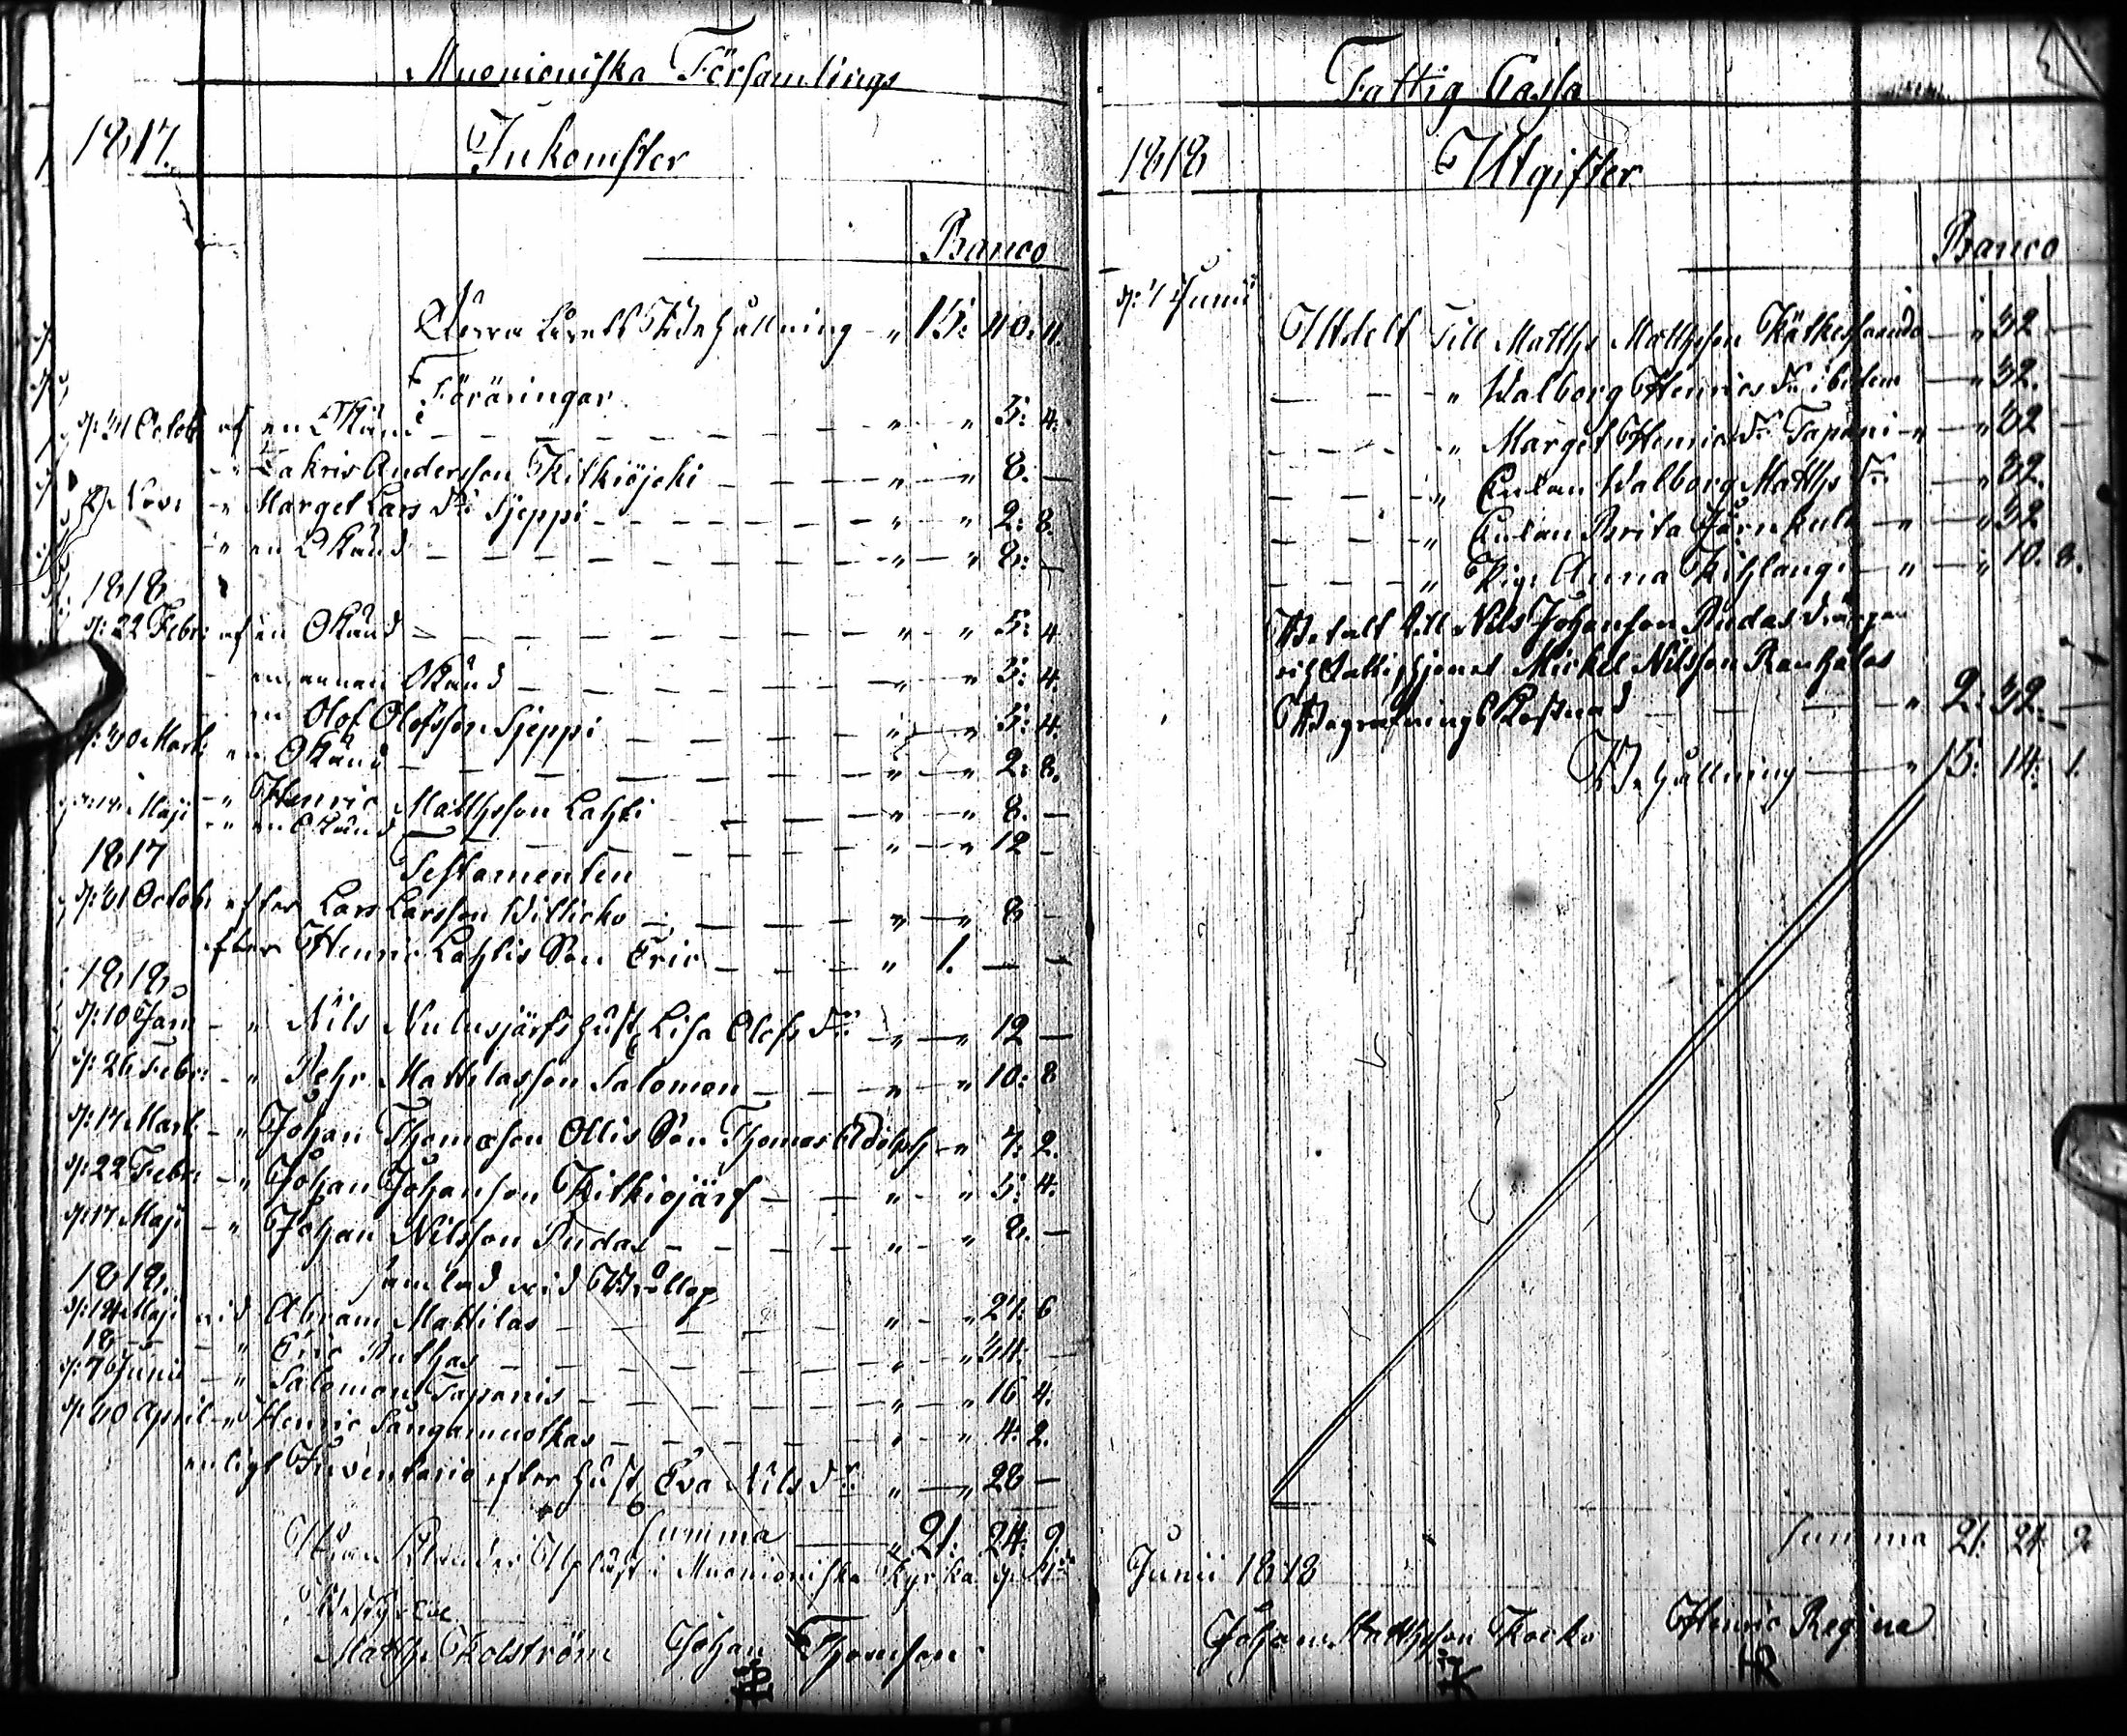 Muonioniska Församlings
1817. Inkomster
Banco
Förra årets Behållning " 15: 40: 11.
Föräringar
d: 31 Octob: af en Okänd " " 5: 4.
" Zakris Andersson Kitkiöjoki " " 8. —
d: Nov: " Marget Lars Dr Sjeppi " " 2: 8.
" en Okänd " " 8: —
1818
d: 22 Febr: af en Okänd " " 5: 4
en annan Okänd " " 5: 4.
Olof Olofsson Sjeppi " " 5: 4.
d: 30 Mart: en Okänd " " 2: 8.
Maji " Henric Matthsson Lahti " " 8. —
" en Okänd " " 12 —
1817 Testamenten
d: 31 Octob: efter Lars Larsson Willicko " " 8 —
efter Henric Lahtis Son Eric " 1. — —
1818.
d: 10 Jan: " Nils Nulusjärfs Hust. Lisa Olofs Dr " " 12 —
d: 26 Febr: " Pehr Mattilas Son Salomon " " 10: 8
d: 17 Mart: " Johan Thomasson Ollis Son Thomas Adolph " 7: 2.
d: 22 Febr: " Johan Johansson Kitkiojärf " " 5: 4.
d: 17 Maji " Johan Nilsson Rudas " " 8. —
1818. samlad vid Bröllop
d: 14 Maji vid Abram Mattilas " " 27: 6
18 " Eric Ruthas " " 34. —
d: 7 Junii " Salomon Tapanis " " 16 4.
d: 30 April " Henric Sangamuotkas " " 4: 2.
enligt Inventario efter Hust. Eva Nils Dr " " 28 —
Summa " 21: 24: 9
Utan Klander Upläst i Muonioniska Kyrka d: 7de
Matths Kolström Johan Thomson
Fattig Cassa
1818 Utgifter
Banco
d: 7 Junii
Utdelt till Matths Matthsson Kätkesuando " 32 —
" Walborg Henrics Dr ibidem " 32. —
" Marget Henrics Dr Tapani " " 32 —
" Enkan Walborg Matths Dr " 32.
" Enkan Brita Järnhult " " 32
" Pig. Anna Kihlangi " " 10. 8.
Betalt till Nils Johansson Rudas
Mickel Nilsson Rauhalas
Begrafnings Kostnad " 2: 32: —
Behållning " 15: 14: 1.
Summa 21: 24: 9.
Junii 1818
Johan Matthsson Kocko Henric Regina
IK HR